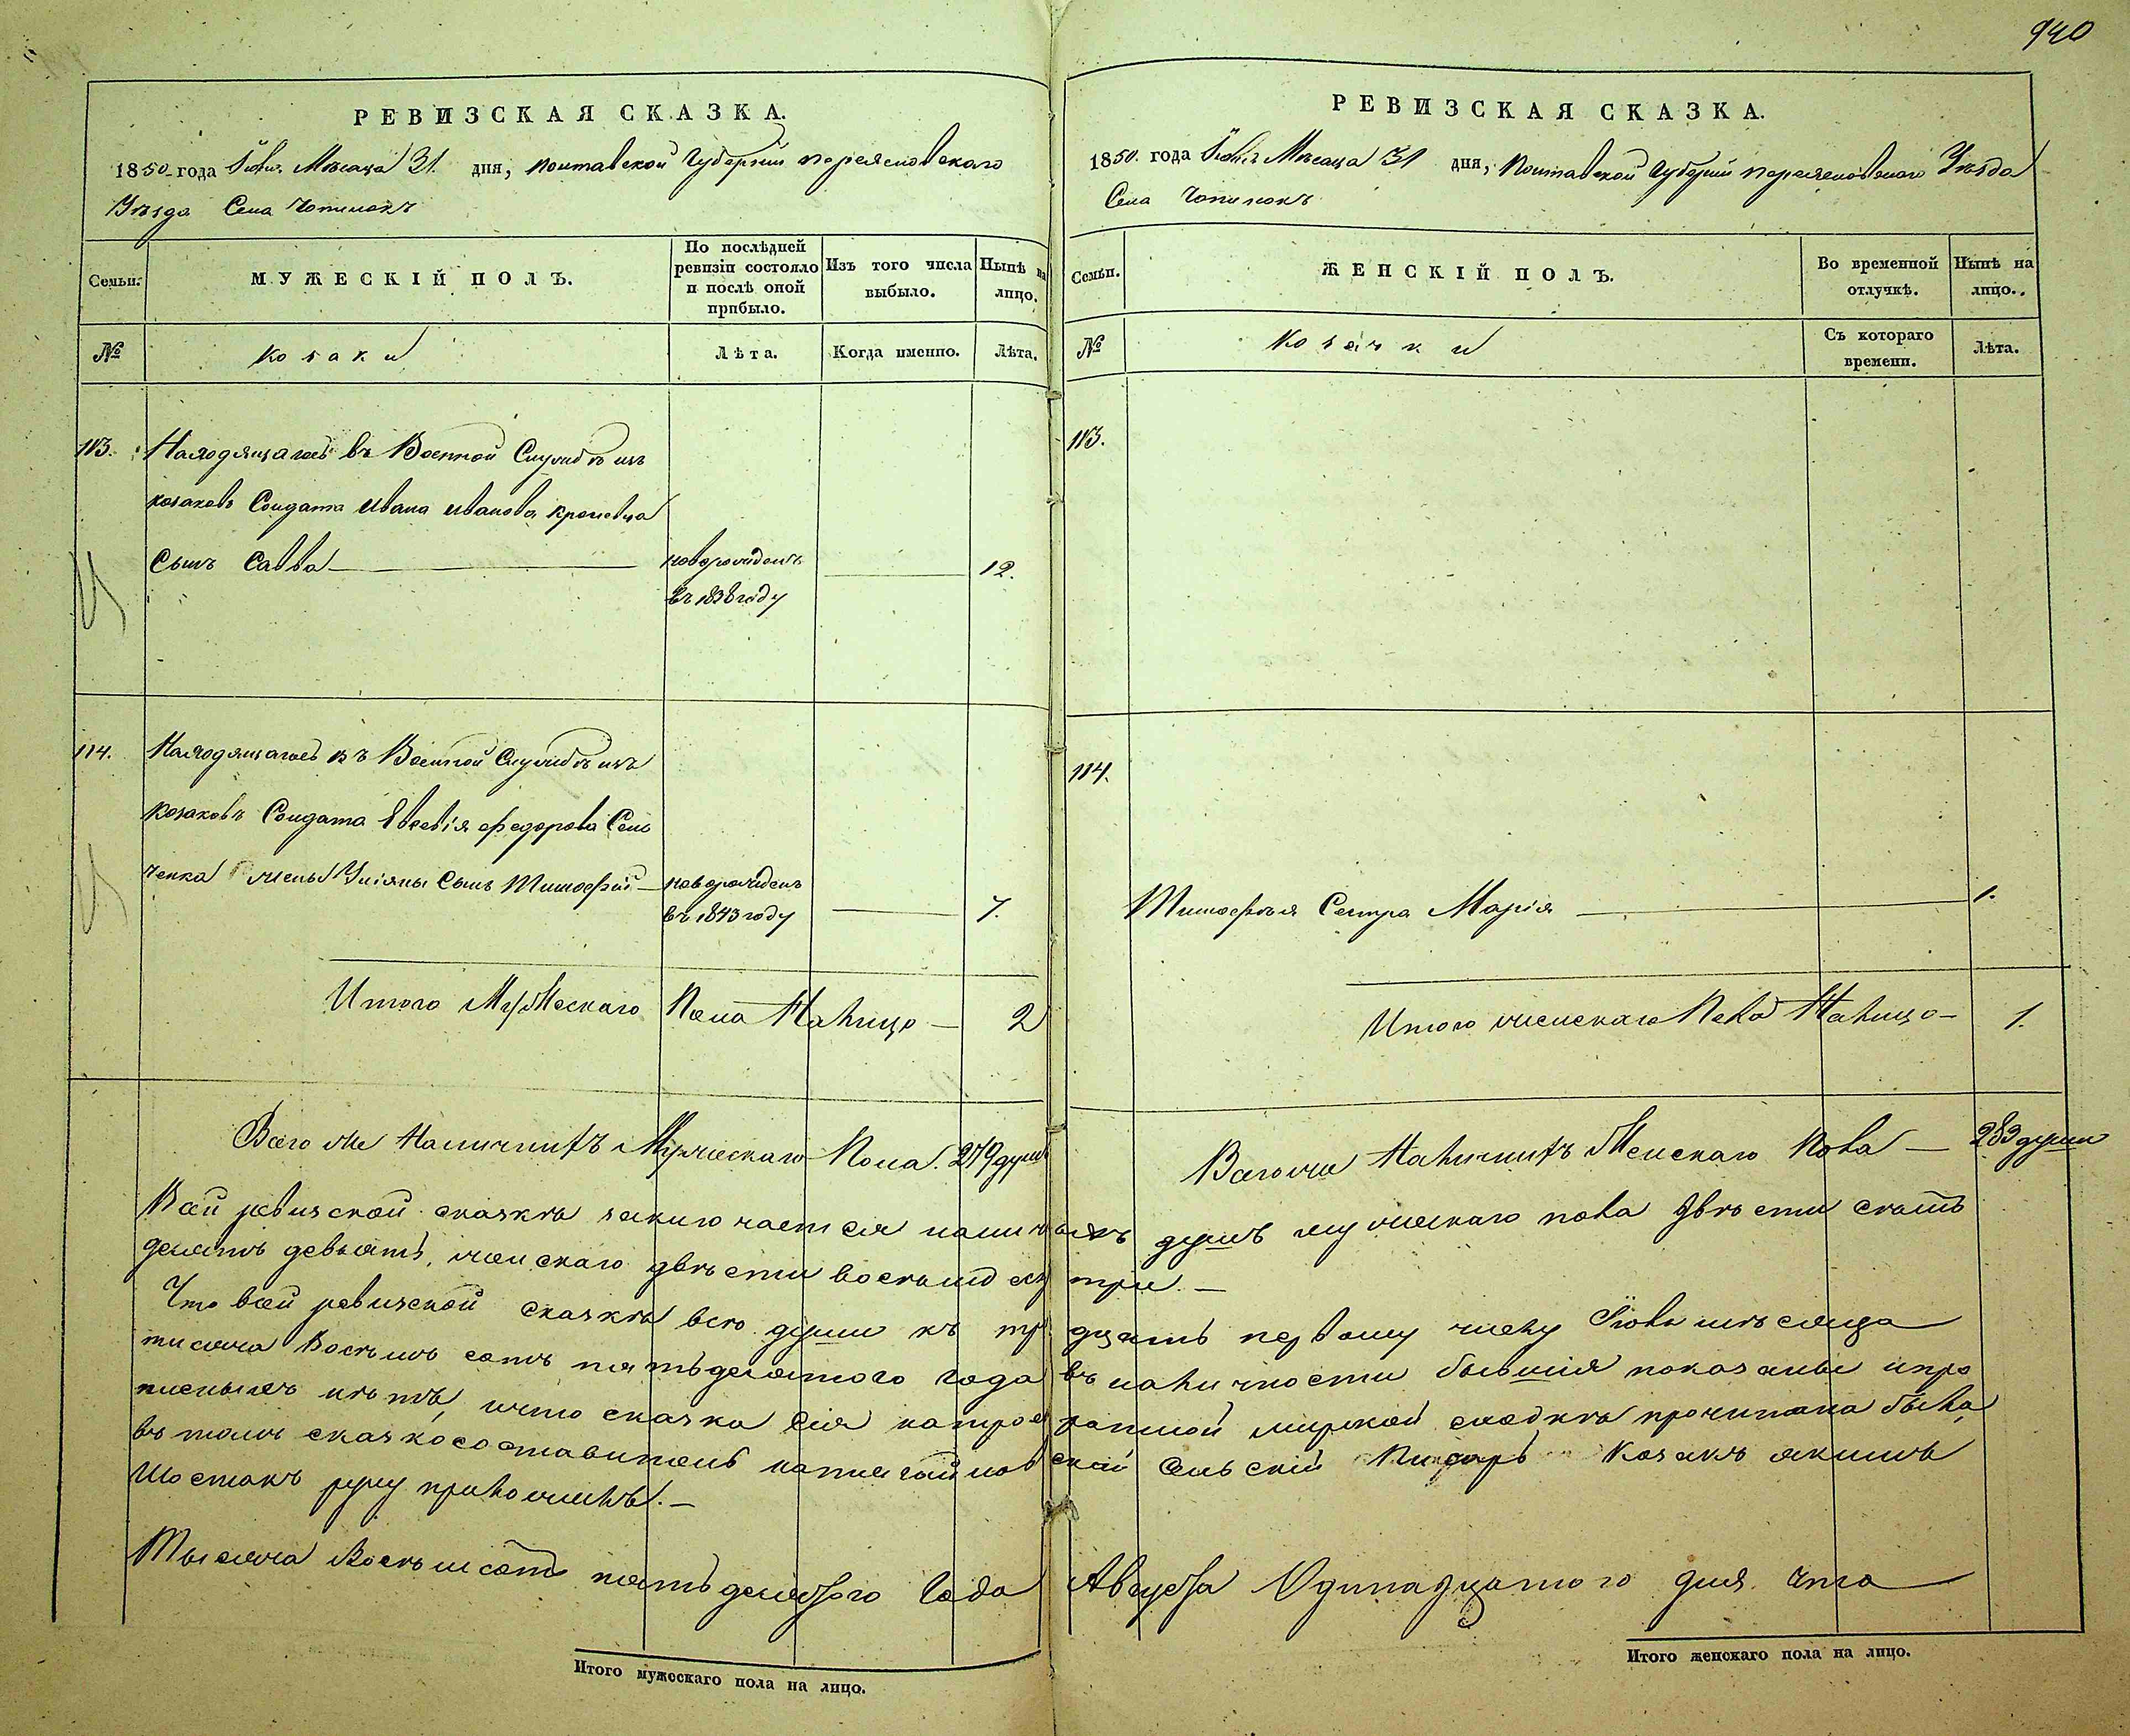 940
РЕВИЗСКАЯ СКАЗКА.
1850 года Іюля Мѣсяца 31. дня, Полтавской Губерніи Переяславскаго
Уѣзда Села Чопилокъ
Семьи.
МУЖЕСКІЙ ПОЛЪ.
По послѣдней ревизіи состояло и послѣ оной прибыло.
Изъ того числа выбыло.
Нынѣ на лицо.
№
Козаки
Лѣта.
Когда именно.
Лѣта.
113. Находящагось въ Военной Службѣ изъ
козаковъ Солдата Ивана Иванова
Сынъ Савва
новорожденъ
въ 1838 году
12.
114. Находящагось въ Военной Службѣ изъ
козаковъ Солдата Евсевія Федорова Сень
ченка жены Уліяны Сынъ Тимофѣй
новорожденъ
въ 1843 году
7.
Итого Мужескаго Пола Налицо — 2
Всего же Наличныхъ Мужескаго Пола. 279 душъ
РЕВИЗСКАЯ СКАЗКА.
1850. года Іюля Мѣсяца 31 дня, Полтавской Губерніи Переяславскаго Уѣзда
Села Чопилокъ
Семьи.
ЖЕНСКІЙ ПОЛЪ.
Во временной отлучкѣ.
Нынѣ на лицо.
№
Козачки
Съ котораго времени.
Лѣта.
113.
114.
Тимофѣя Сестра Марія
1.
Итого женскаго Пола Налицо — 1.
Всего же Наличныхъ Женскаго Пола — 283 души
Всей ревизской сказкѣ заключается наличныхъ душъ мужескаго пола двѣсти семь
десятъ девять, женскаго двѣсти восемьдесят три. —
Что всей ревизской сказкѣ всѣ души къ тридцать первому числу Іюля мѣсяца
тисяча восѣмъ сотъ пятьдесятого года въ наличности бывшія показаны и про
писныхъ нѣтъ, и что сказка сія на мирской сходкѣ прочитана была,
въ томъ сказкосоставитель сельскій Писарь Козакъ Якимъ
Шостакъ руку приложилъ. —
Тысяча Восѣмсотъ пятьдесятого Года Августа Одинадцатого дня что
Итого мужескаго пола на лицо.
Итого женскаго пола на лицо.